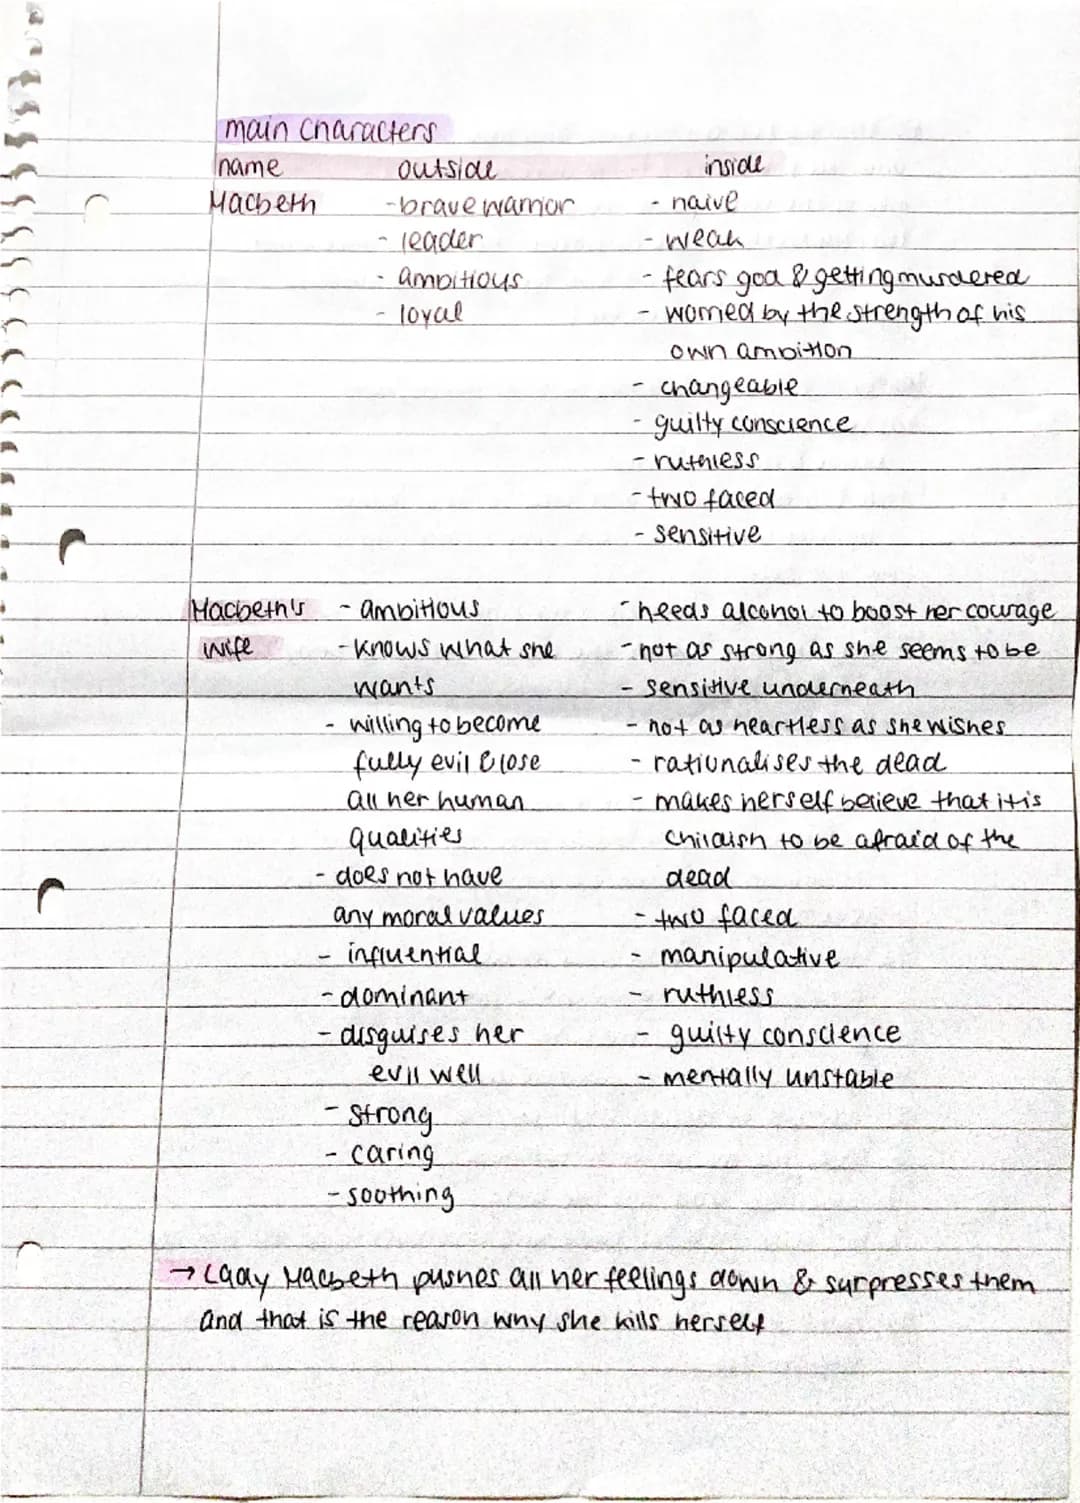 main characters
name outside inside
Macbeth - brave warrior - naive
- leader - weak
- ambitious - fears god & getting murdered
- loyal - worried by the strength of his
own ambition
- changeable
- guilty conscience
- ruthless
- two faced
- sensitive
Macbeth's - ambitious - needs alcohol to boost her courage
wife - knows what she - not as strong as she seems to be
wants - sensitive underneath
- willing to become - not as heartless as she wishes
fully evil & lose - rationalises the dead
all her human - makes herself believe that it is
qualities childish to be afraid of the
- does not have dead
any moral values - two faced
- influential - manipulative
- dominant - ruthless
- disguises her - guilty conscience
evil well - mentally unstable
- strong
- caring
- soothing
→ Lady Macbeth pushes all her feelings down & surpresses them
and that is the reason why she kills herself